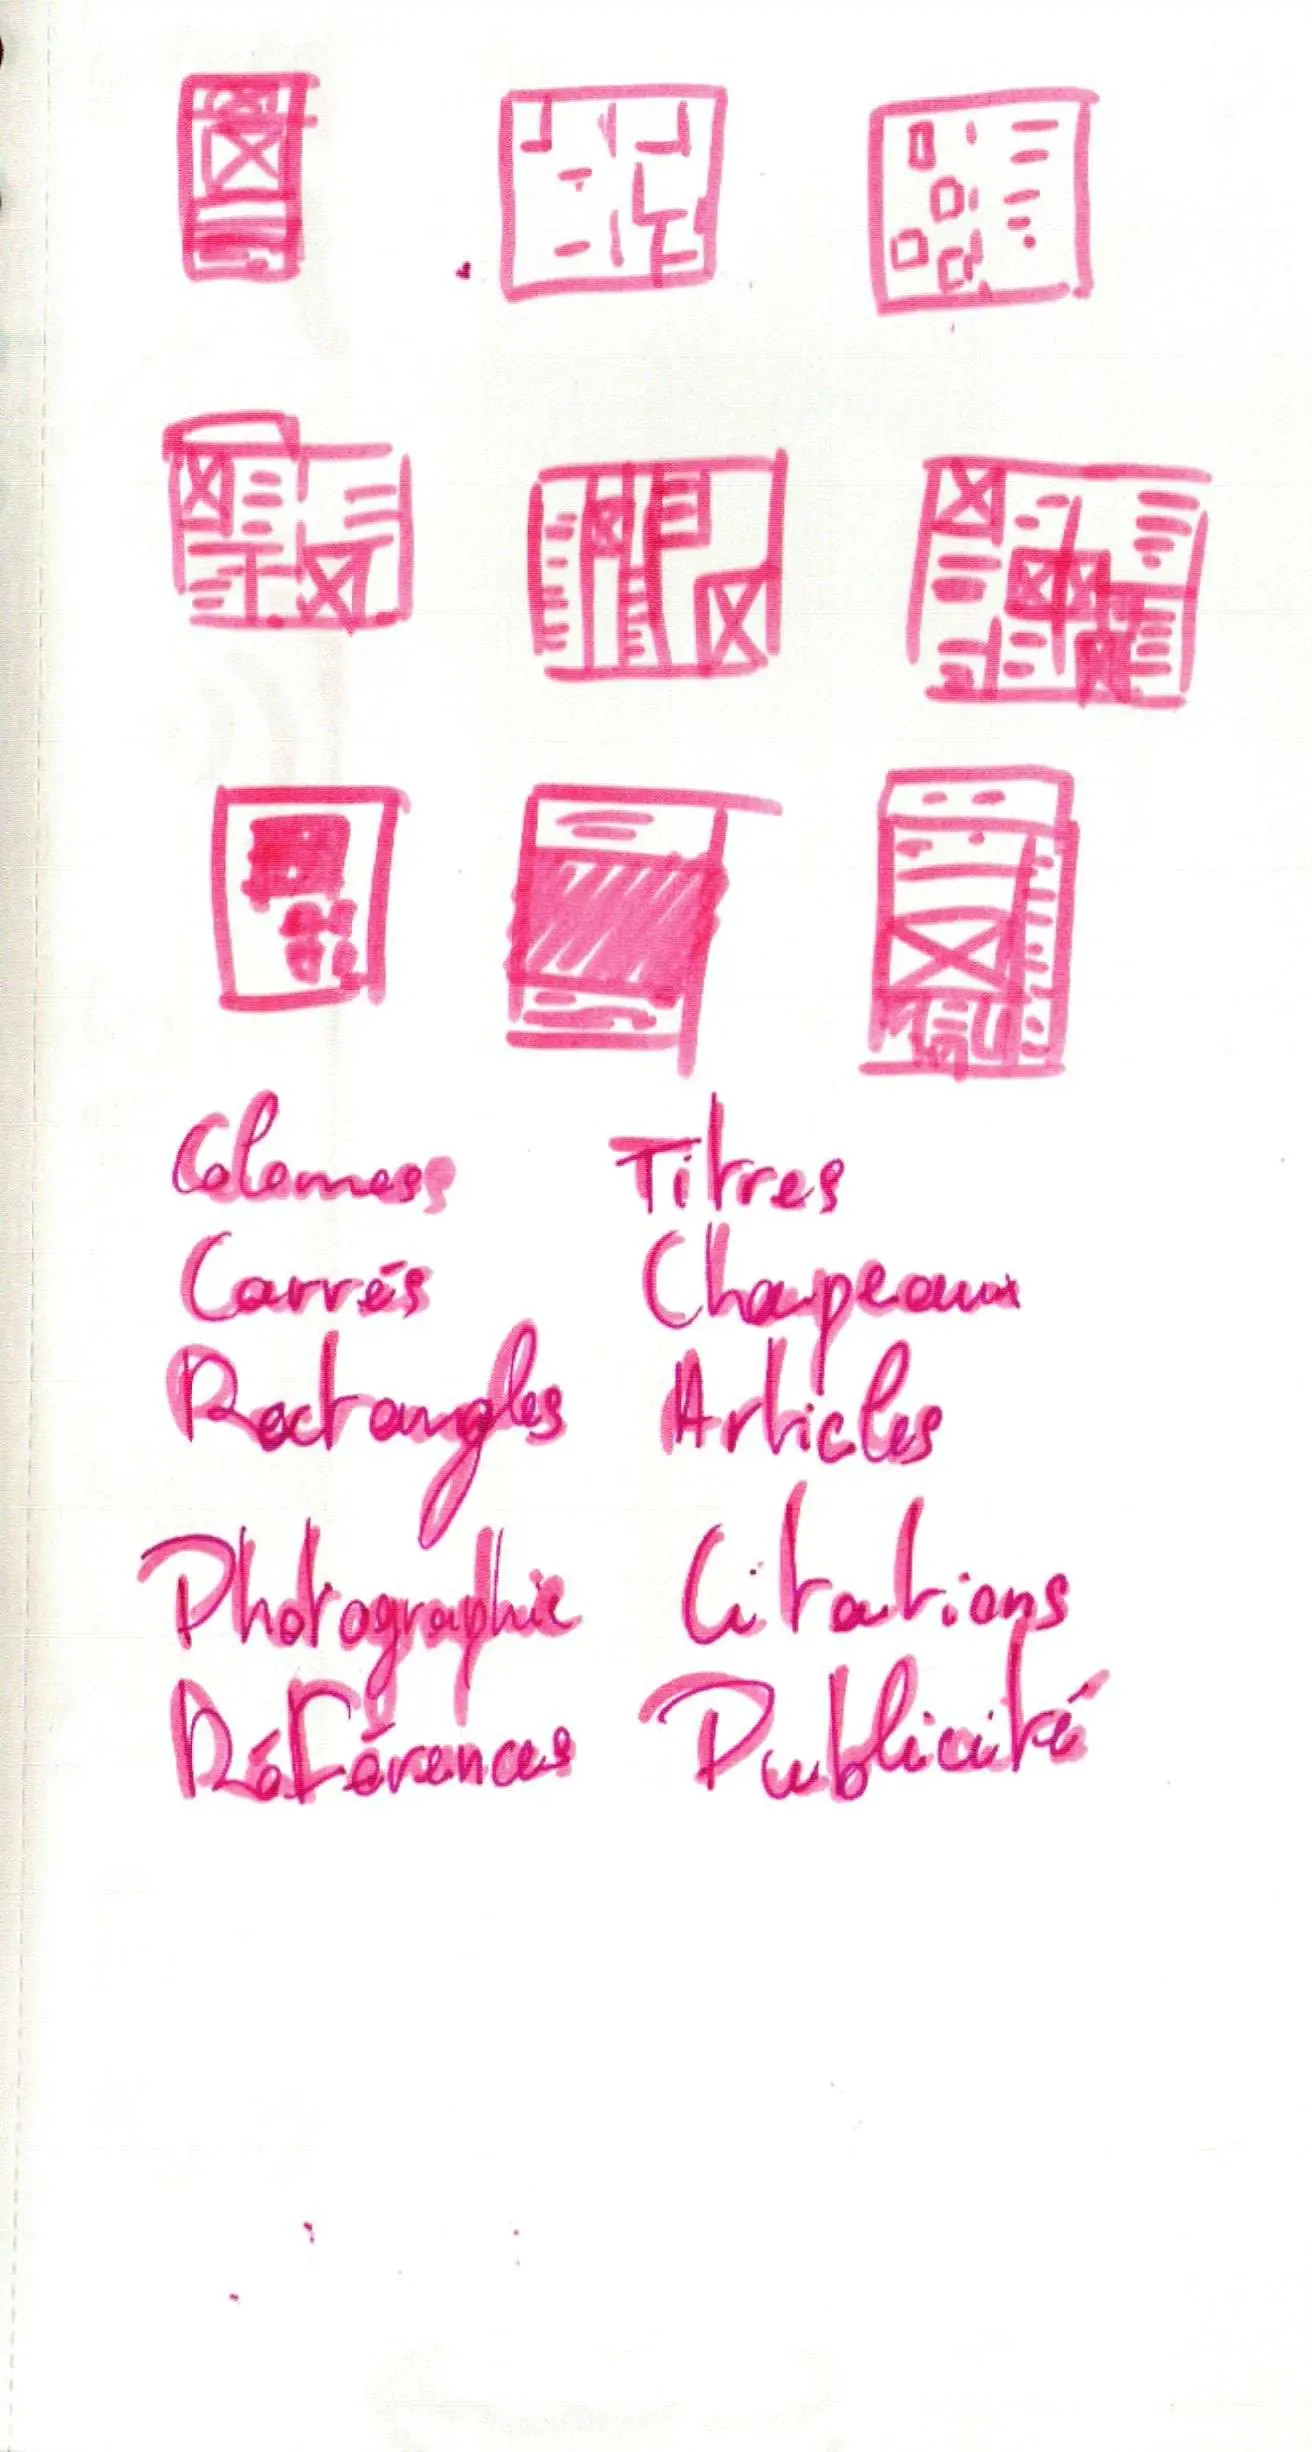 Colonnes
Carrés
Rectangles
Photographie
Références
Titres
Chapeaux
Articles
Citations
Publicité